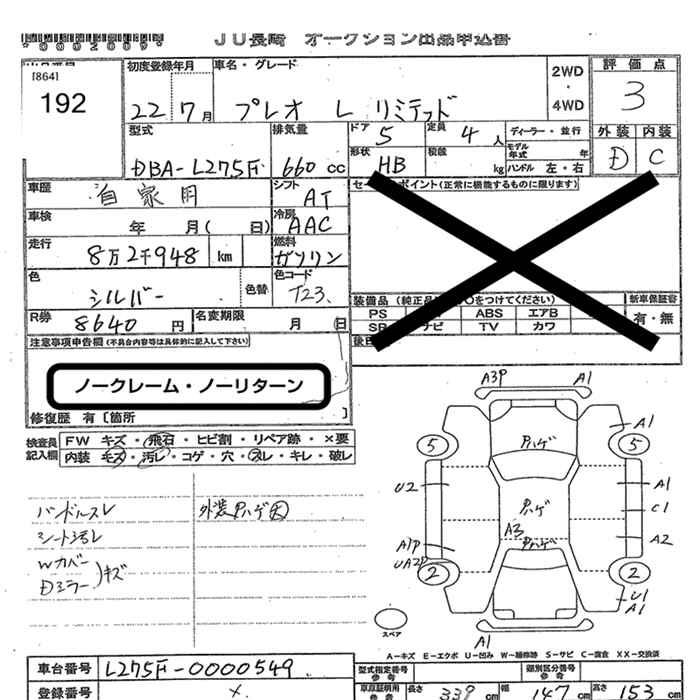 *0002009*
JU長崎 オークション出品申込書
[864]
192
初度登録年月
22 7月
車名・グレード
プレオ L リミテッド
2WD
・
4WD
評価点
3
外装 内装
D C
型式
DBA-L275F
排気量
660 cc
ドア 5
定員 4人
ディーラー・並行
形状 HB
積載 kg
モデル年式 年
ハンドル 左・右
車歴 自家用
シフト AT
セールスポイント(正常に機能するものに限ります)
車検 年 月( 日)
冷房 AAC
走行 8万2千948 km
燃料 ガソリン
色 シルバー
色替
色コード T23
装備品 (純正品
をつけてください)
新車保証書
有・無
PS
ABS エアB
SR
ナビ TV カワ
R券 8640円
名変期限 月 日
注意事項申告欄(不具合内容等は具体的に記入して下さい)
ノークレーム・ノーリターン
修復歴 有 [箇所 ]
検査員記入欄
FW キズ・飛石・ヒビ割・リペア跡・×要
内装 キズ・汚レ・コゲ・穴・スレ・キレ・破レ
ハンドルスレ
シート汚レ
Wカバー
Dミラー)キズ
外装Pハゲ大
A3P A1
Pハゲ
A1
5 5
U2
Pハゲ
A1
C1
A3
A1P
Pハゲ
A2
UA2P
2 2
U1
A1
A1
スペア
A-キズ E-エクボ U-凹み W-補修跡 S-サビ C-腐食 XX-交換済
車台番号 L275F-0000549
登録番号
型式指定番号
参考
類別区分番号
参考
車庫証明用
参考
長さ 339 cm
幅 147 cm
高さ 153 cm